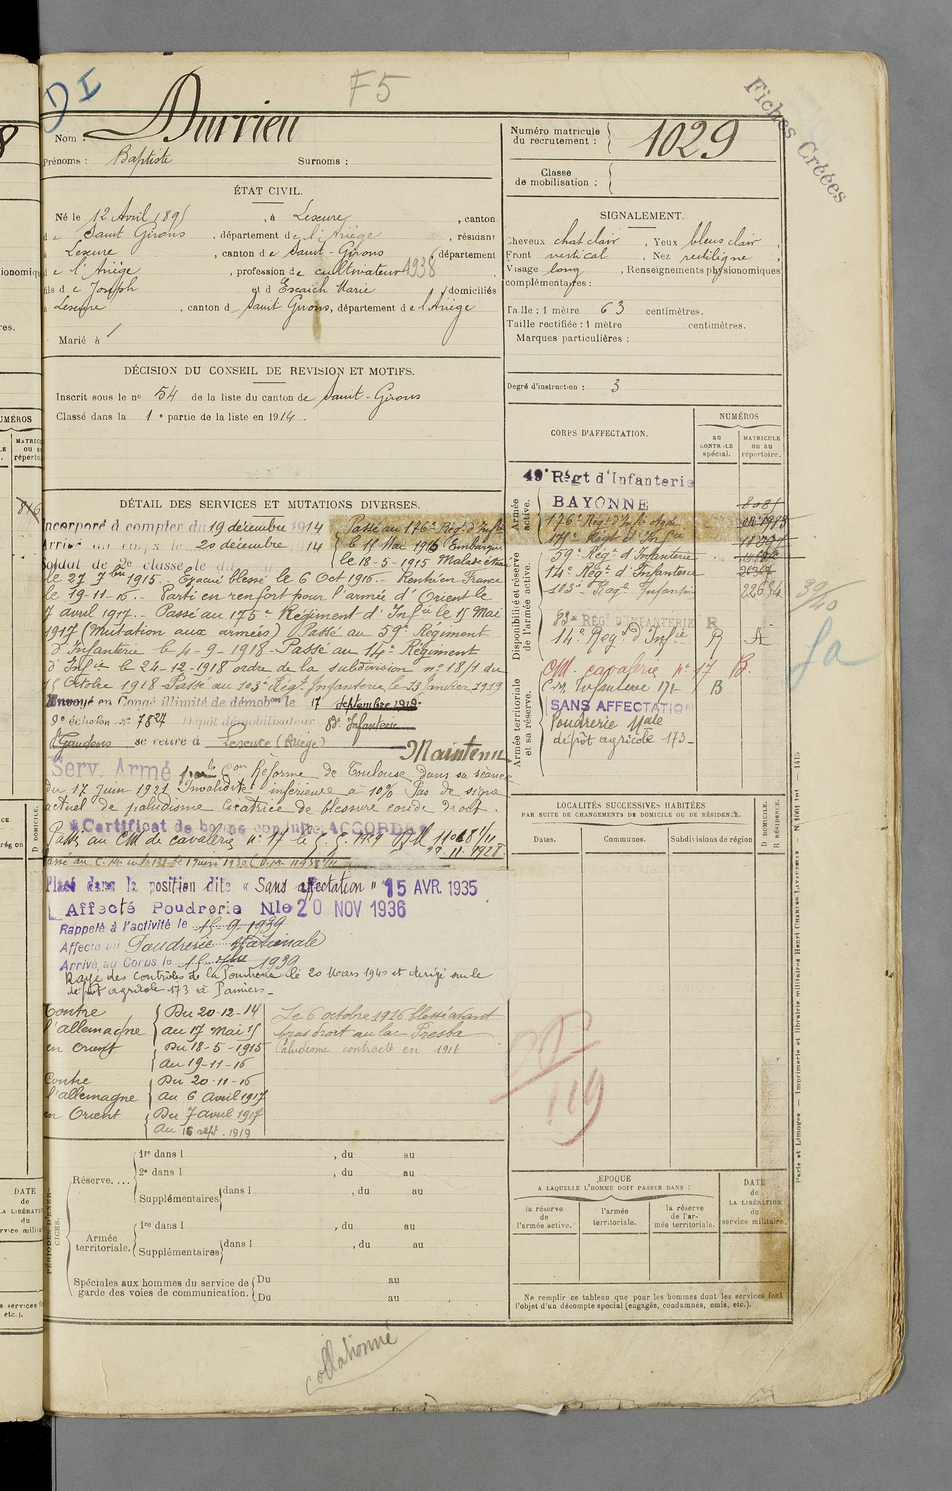 DI
F5
Fiches Créées
Nom : Durrieu
Prénoms : Baptiste Surnoms :
Numéro matricule du recrutement : 1029
Classe de mobilisation :
ÉTAT CIVIL.
Né le 12 Avril 1895, à Lescure, canton
de Saint Girons, département de l'Ariège, résidant
à Lescure, canton de Saint-Girons département
de l'Ariège, profession de cultivateur 1938
fils de Joseph et d Escaich Marie domiciliés
à Lescure, canton d Saint Girons, département de l'Ariège
Marié à
SIGNALEMENT.
Cheveux chat clair, Yeux bleus clair,
Front vertical, Nez rectiligne,
Visage long, Renseignements physionomiques
complémentaires :
Taille : 1 mètre 63 centimètres.
Taille rectifiée : 1 mètre centimètres.
Marques particulières :
Degré d'instruction : 3
DÉCISION DU CONSEIL DE REVISION ET MOTIFS.
Inscrit sous le no 54 de la liste du canton de Saint-Girons
Classé dans la 1e partie de la liste en 1914.
CORPS D'AFFECTATION.
NUMÉROS
AU CONTROLE spécial.
MATRICULE OU AU répertoire.
Armée active.
49e Régt d'Infanterie
BAYONNE
176e Régt d'Infie
175e Régt d'Infie
Disponibilité et réserve de l'armée active.
59e Régt d'Infanterie
14e Régt d'Infanterie
103e Regt Infanterie 22684
83e RÉGt D'INFANTERIE R
14e Regt d'Infie R A
Armée territoriale et sa réserve.
CM. cavalerie no 17 B.
Infanterie 171 B
SANS AFFECTATION
Poudrerie Nale
dépôt agricole 173
39/40
DÉTAIL DES SERVICES ET MUTATIONS DIVERSES.
Incorporé à compter du 19 décembre 1914
Arrivé au corps le 20 décembre 14
soldat de 2e classe le dit jour
Passé au 176e Régt d'Infie
le 15 Mai 1915 Embarqué
le 18-5-1915 Malade
le 27 7bre 1915. Evacué blessé le 6 Oct 1916. Rentré en France
le 19-11-16. Parti en renfort pour l'armée d'Orient le
7 avril 1917. Passé au 175e Régiment d'Infie le 15 Mai
1917 (Mutation aux armées) Passé au 59e Régiment
d'Infanterie le 4-9-1918. Passé au 14e Régiment
d'Infie le 24-12-1918 ordre de la subdivision no 18/1 du
15 Octobre 1918. Passé au 103e Régt Infanterie le 13 Janvier 1919
Envoyé en Congé illimité de démobon le 17 septembre 1919
9e échelon no 7827 Dépôt démobilisateur 83e Infanterie
St Gaudens se retire à Lescure (Ariège)
Maintenu
Serv. Armé par la Con Réforme de Toulouse dans sa séance
du 17 juin 1921 Invalidité inférieure à 10% Pas de signe
actuel de paludisme cicatrice de blessure coude droit.
Certificat de bonne conduite ACCORDÉ
Passé au CM de cavalerie no 17
Placé dans la position dite « Sans affectation » 15 AVR. 1935
Affecté Poudrerie Nle 20 NOV 1936
Rappelé à l'activité le 15-9-1939
Affecté au Poudrerie Nationale
Arrivé au Corps le 15 1939
Rayé des contrôles de la Poudrerie le 20 Mars 1940 et dirigé sur le
dépôt agricole 173 à Pamiers
Contre l'allemagne en Orient
Du 20-12-14
au 17 Mai 15
Du 18-5-1915
au 19-11-16
Contre l'allemagne en Orient
Du 20-11-16
au 6 Avril 1917
Du 7 avril 1917
Au 16 sept. 1919
Le 6 octobre 1916 blessé avant
bras droit au lac Presba
Paludisme contracté en 1916
LOCALITÉS SUCCESSIVES HABITÉES
PAR SUITE DE CHANGEMENTS DE DOMICILE OU DE RÉSIDENCE.
Dates. Communes. Subdivisions de région
D DOMICILE.
R RÉSIDENCE.
119
PÉRIODES D'EXERCICES.
Réserve....
1re dans l , du au
2e dans l , du au
Supplémentaires dans l , du au
Armée territoriale.
1re dans l , du au
Supplémentaires dans l , du au
Spéciales aux hommes du service de garde des voies de communication.
Du au
Du au
ÉPOQUE
A LAQUELLE L'HOMME DOIT PASSER DANS :
la réserve de l'armée active.
l'armée territoriale.
la réserve de l'armée territoriale.
DATE de LA LIBÉRATION du service militaire.
Ne remplir ce tableau que pour les hommes dont les services font
l'objet d'un décompte spécial (engagés, condamnés, omis, etc.).
Paris et Limoges. — Imprimerie et librairie militaires Henri CHARLES-LAVAUZELLE
collationné